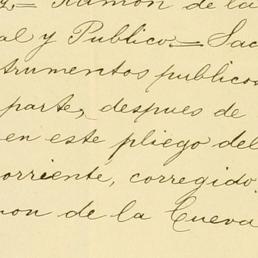 Ramon de la
al y Publico.= Sac
trumentos publicos
parte, despues de
en este pliego del
orriente, corregido.
on de la Cueva